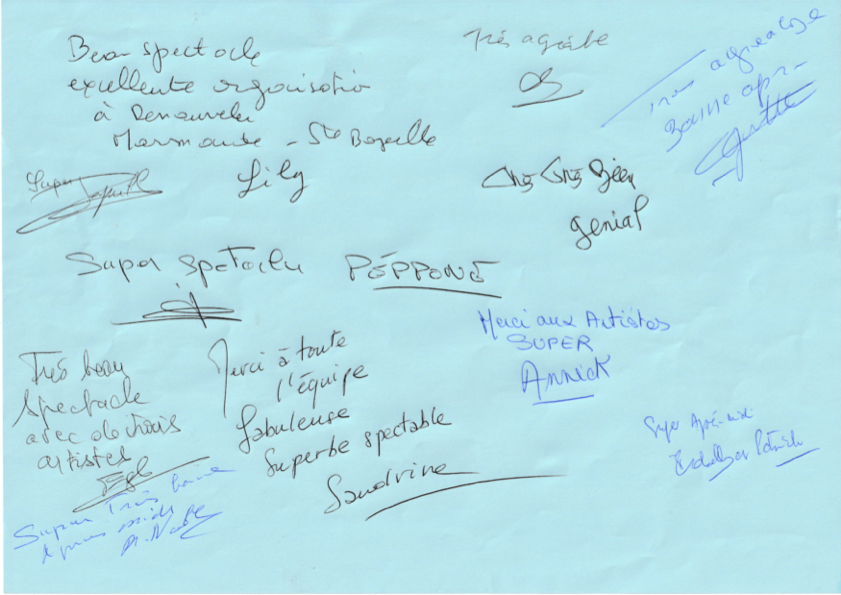 Beau spectacle
excellente organisation
à Renouveler
Marmande - Ste Bazeille
Lily
Très agréable
Très agréable
Bonne apr-
Super
Très Très Bien
génial
Super spectacle
PÉPPONÉ
Merci aux Artistes
SUPER
Annick
Très beau
spectacle
avec de vrais
artistes
Merci à toute
l'équipe
fabuleuse
Superbe spectable
Sandrine
Super Très bonne
après midi
Super Après-midi
Patrick